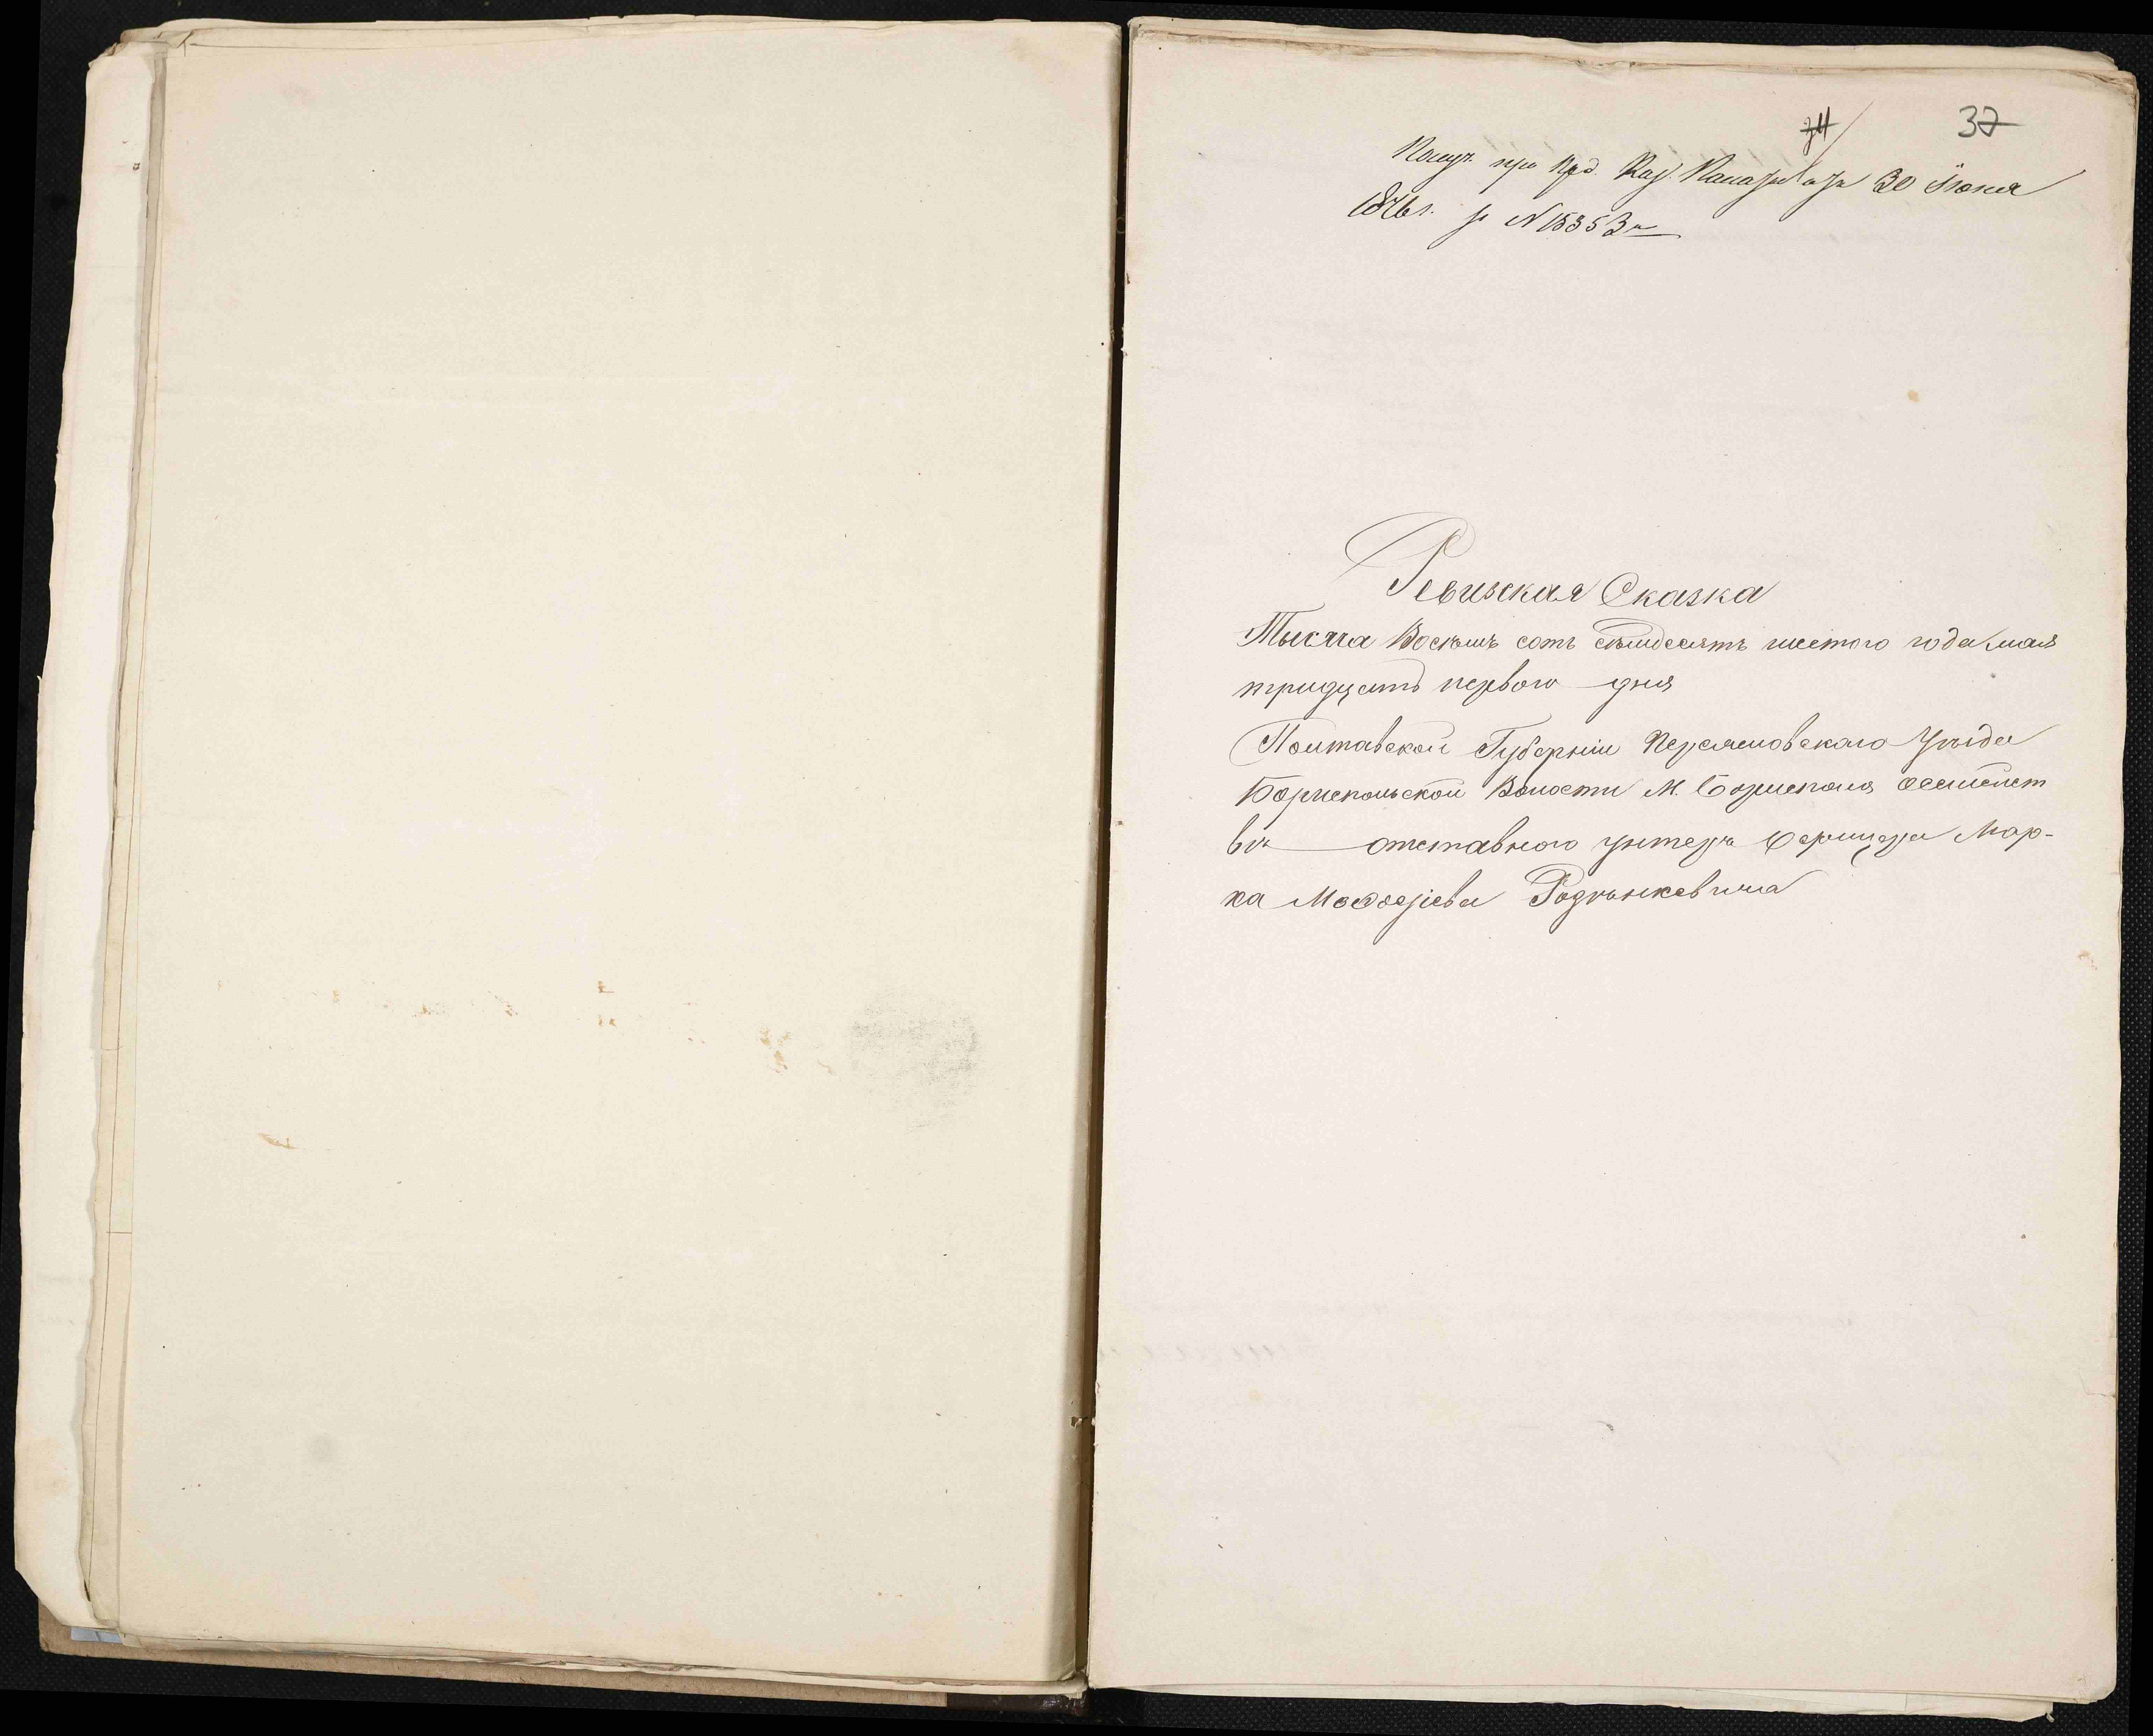 34 37
Получ. при пред. Каз. Палаты отъ 30 Іюня
1876 г. за N 15353 м
Ревизская Сказка
Тысяча Восѣмъ сотъ сѣмдесятъ шестого года мая
тридцать первого дня
Полтавской Губерніи Переяславского Уѣзда
Бориспольской Волости М. Борисполя семѣйст
въ отставного унтеръ Офицера Мар-
ка Моѳсеіева Родзѣнкевича